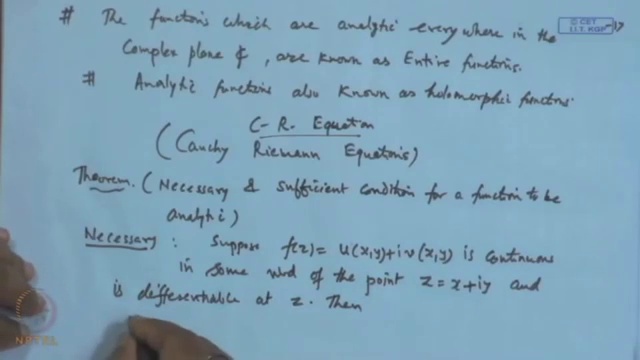 # The functions which are analytic everywhere in the
Complex plane ₵, are known as Entire functions.
# Analytic functions also known as holomorphic functions.
C-R. Equation
(Cauchy Riemann Equations)
Theorem. (Necessary & sufficient condition for a function to be
analytic)
Necessary : Suppose f(z) = u(x,y)+iv(x,y) is continuous
in some nbd of the point z = x+iy and
is differentiable at z. Then
© CET
I.I.T. KGP
NPTEL